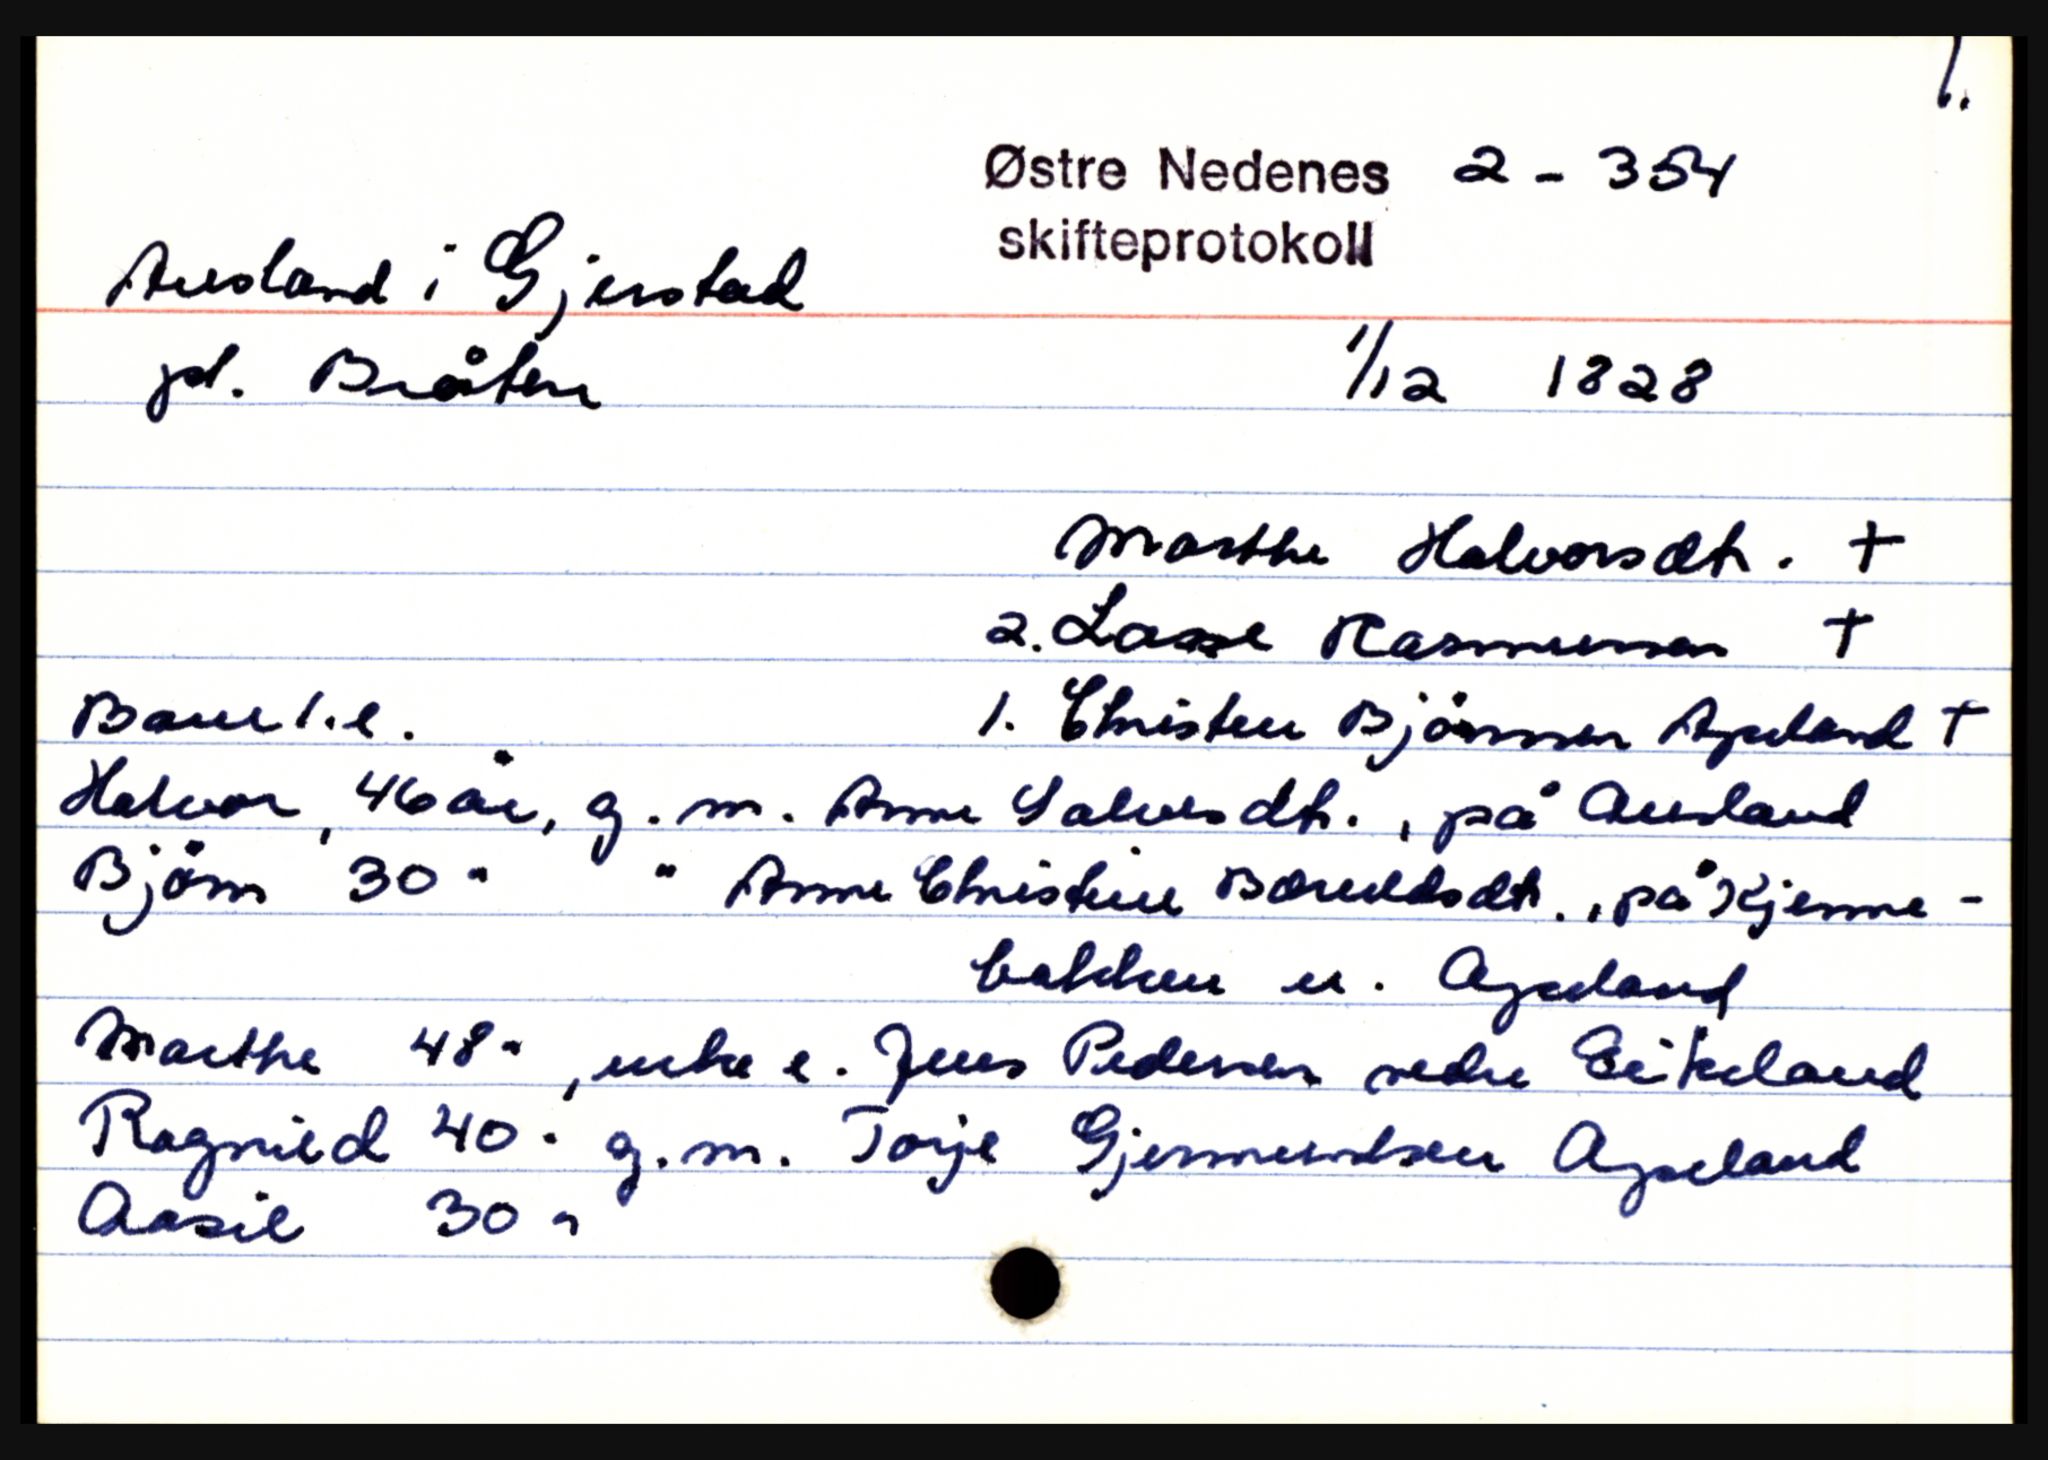 1.
Østre Nedenes 2 - 354
skifteprotokoll
Ausland i Gjerstad
pl. Bråten 1/12 1828
Marthe Halvorsdtr. +
2. Lasse Rasmussen +
Barn 1.e. 1. Christen Björnsen Apeland +
Halvor, 46 år, g. m. Anne Salvesdtr., på Ausland
Björn 30 " " Anne Christine Beruldsdtr., på Kjenne-
bakken u. Apeland
Marthe 48 ", enke e. Jens Pedersen nedre Eikeland
Ragnild 40 " g. m. Torje Gjermundsen Apeland
Aasil 30 "